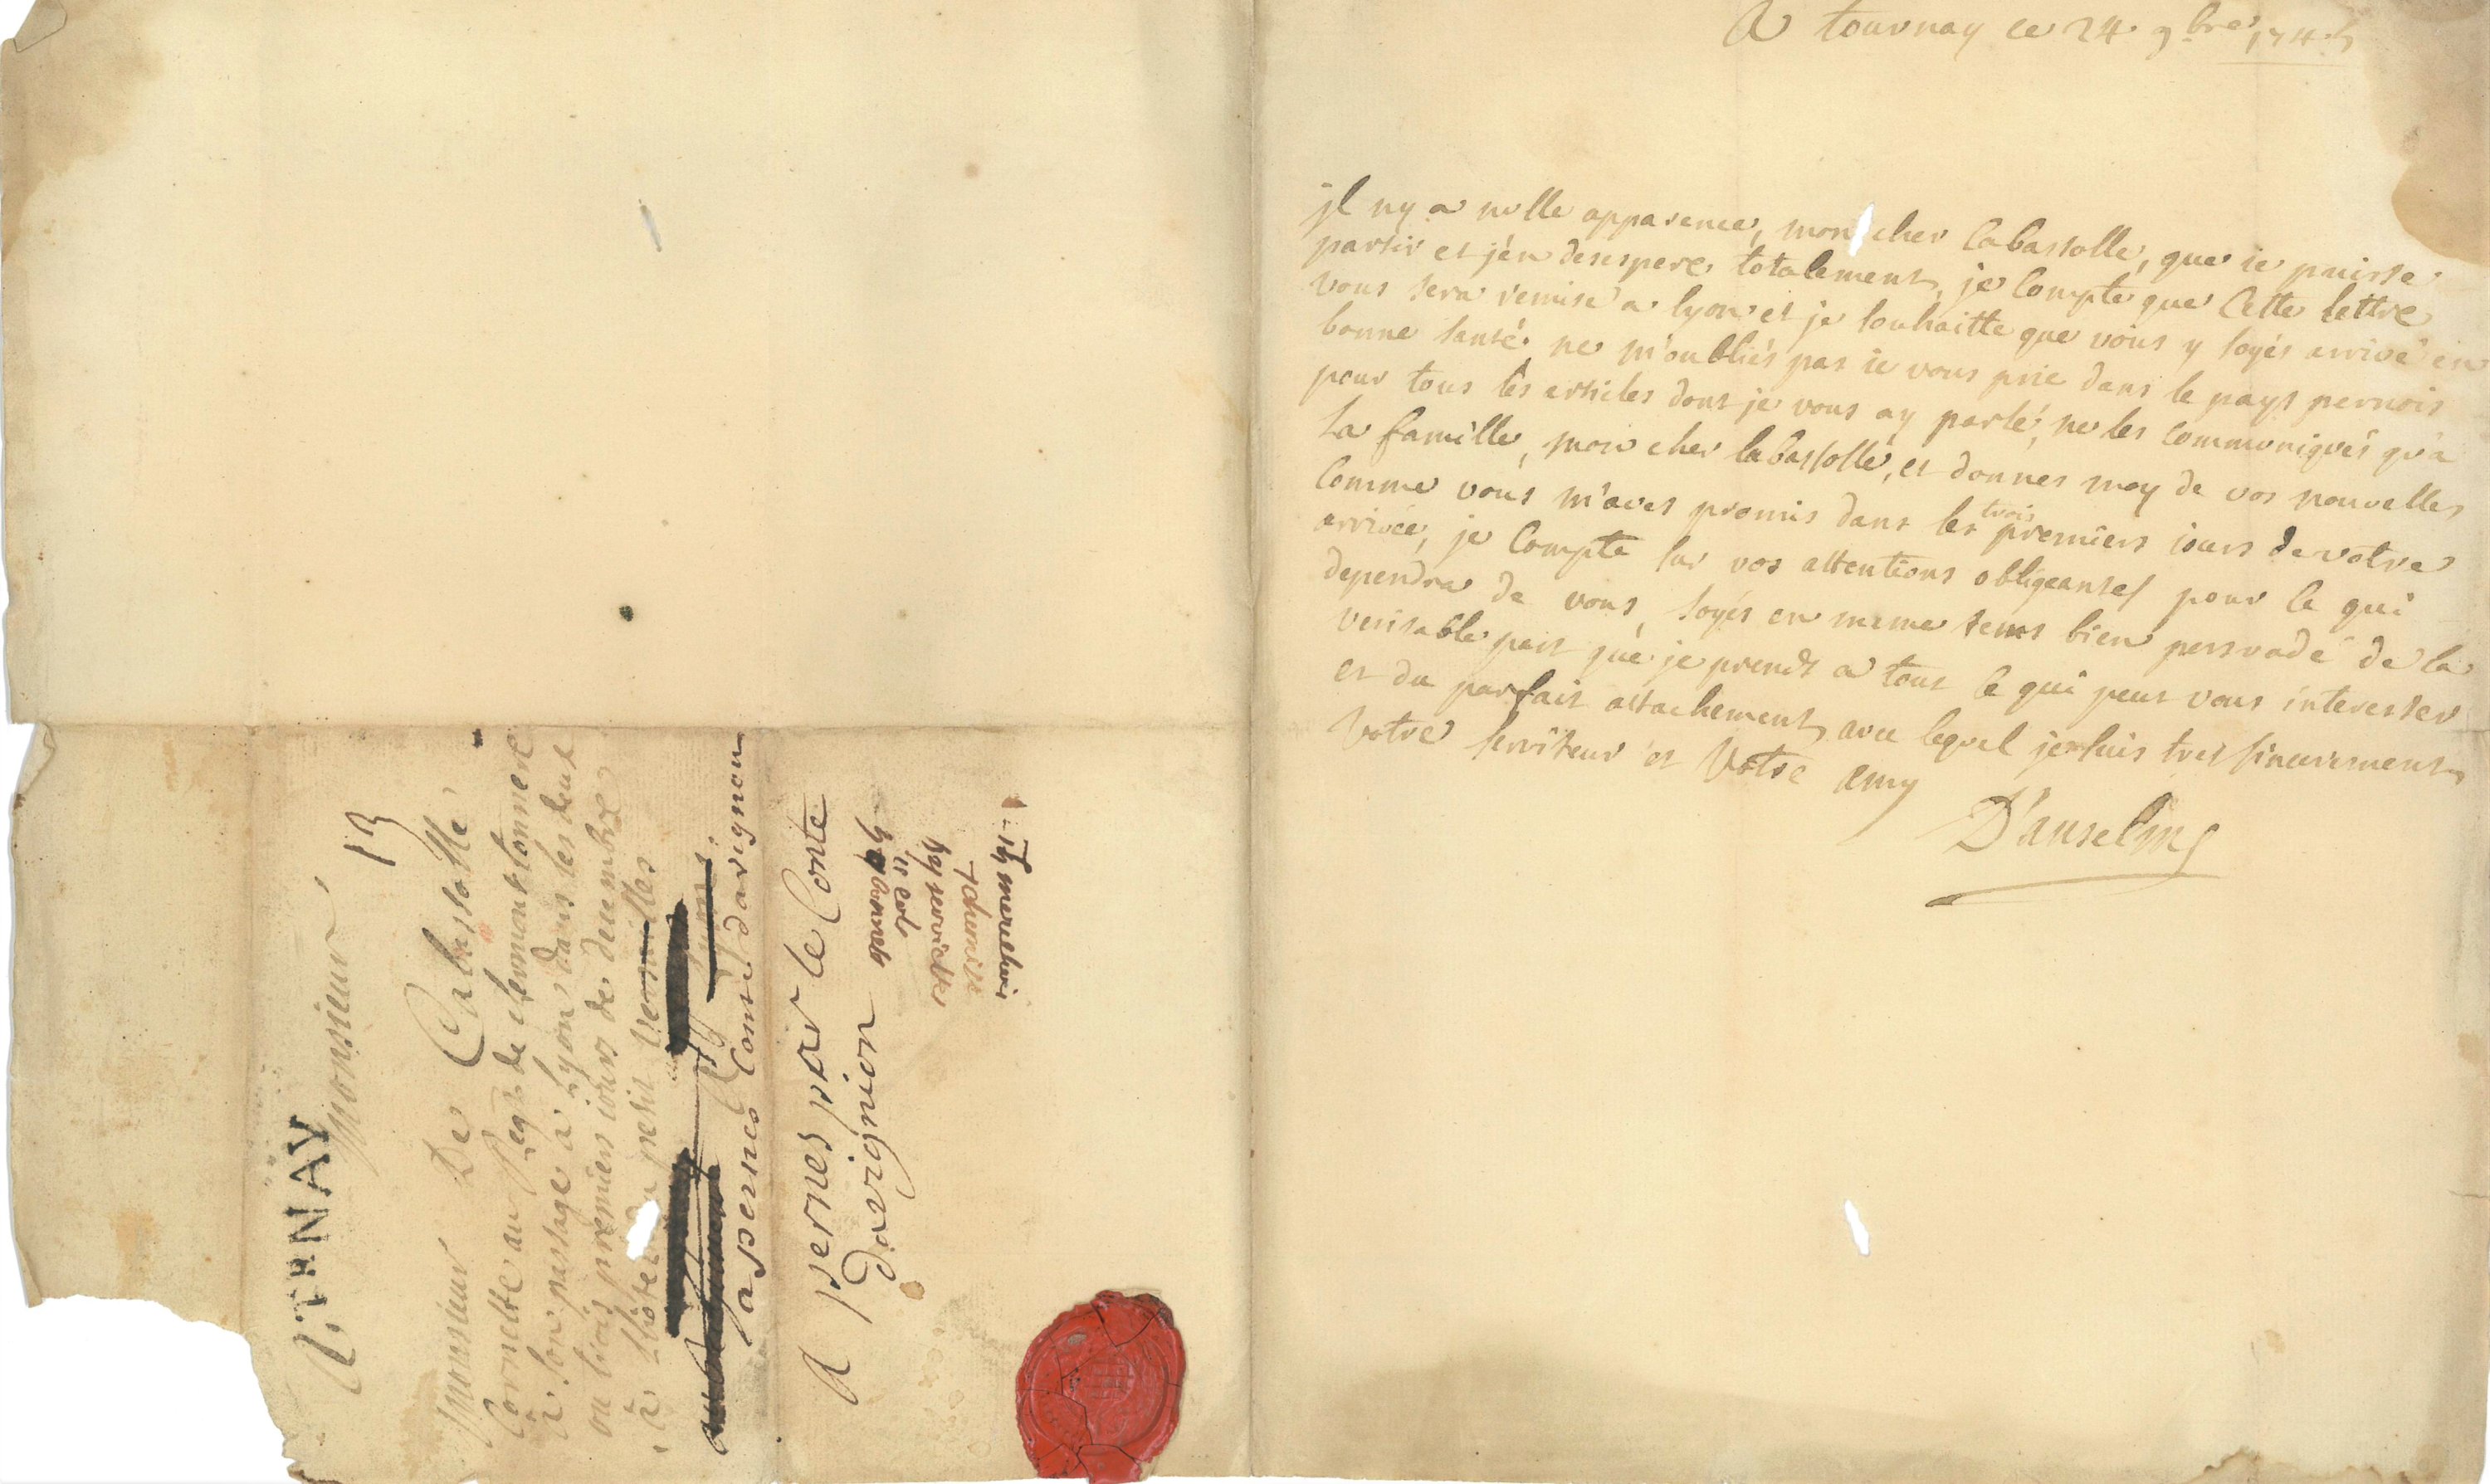 A tournay ce 24 9bre 1745
jl ny a nulle apparence, mon cher Cabassolle, que ie puisse
partir et j'en desespere totalement, je Compte que Cette lettre
vous sera remise a lyon et je souhaitte que vous y soyés arrivé en
bonne santé, ne m'oubliés pas ie vous prie dans le pays pernois
pour tous les articles dont je vous ay parlé, ne les Communiqués qu'a
La famille, mon cher Cabassolle, et donnes moy de vos nouvelles
Comme vous m'aves promis dans les trois premiers iours de votre
arrivée, je Compte sur vos attentions obligeantes pour Ce qui
dependra de vous, soyés en meme tems bien persvadé de la
veritable part que je prends a tout Ce qui peut vous interesser
et du parfait attachement avec lequel je suis tres sincerement
Votre serviteur et Votre amy
D'anselme
TRNAY
Monsieur
13
Monsieur De Cabassolle
Cornette au Regt de clermont tonnere
a son passage a Lyon dans les deux
ou trois premiers iours de decembre
a l'hotel petit Versailles
Lyon
a pernes Comté davignon
A pernes par le Conte
davignion